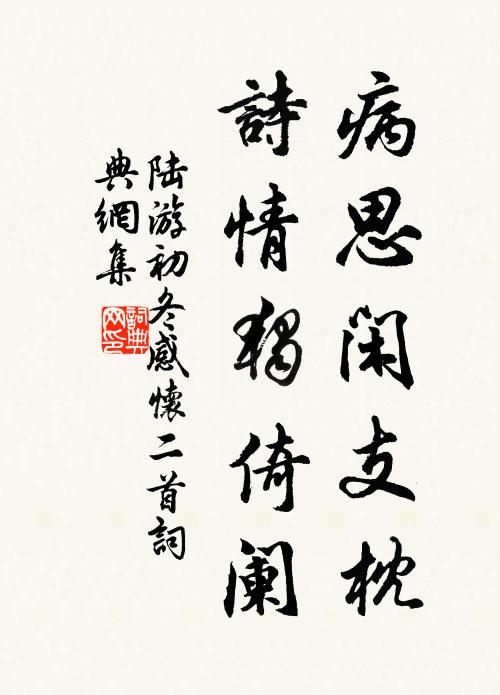 病思閑支枕
詩情獨倚闌
陸游初冬感懷二首詞
典網集
詞典
网印